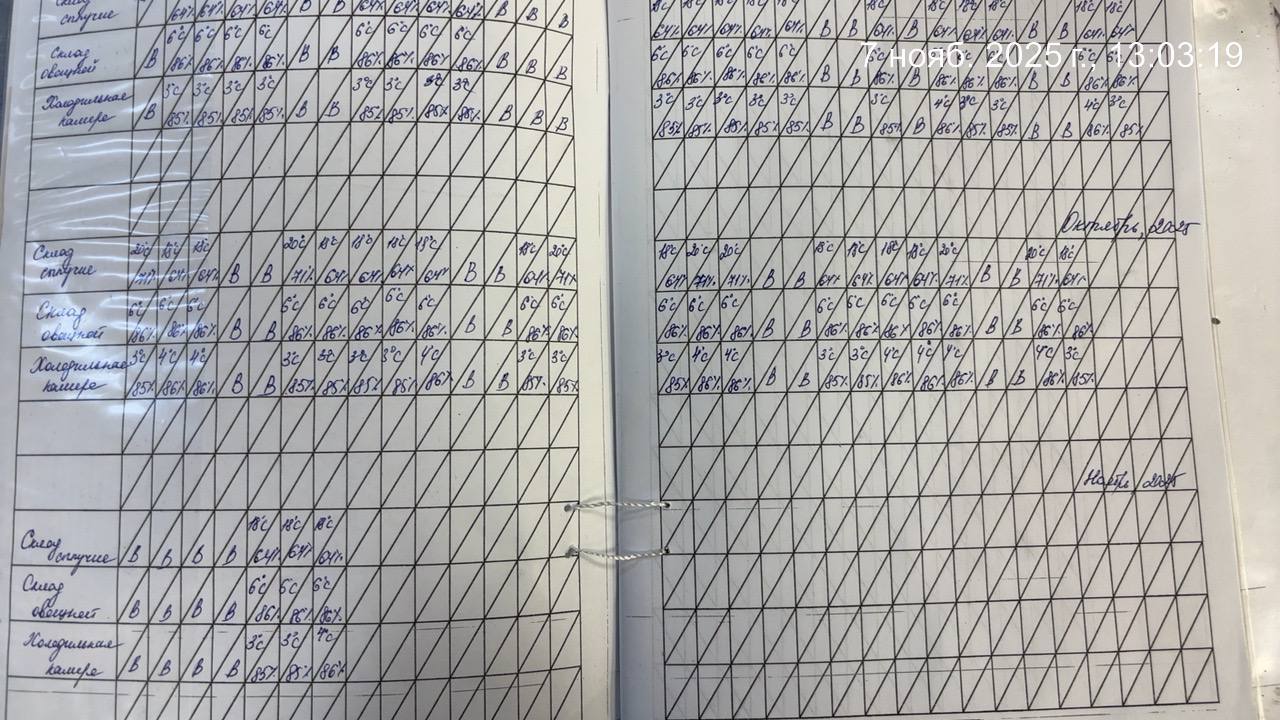 7 нояб. 2025 г., 13:03:19
Склад сыпучие 64% 64% 64% 64% В В 64% 64% 64% 64% В В В
Склад овощной В 6°С 86% 6°С 86% 6°С 86% 6°С 86% В В 6°С 86% 6°С 86% 6°С 86% 6°С 86% В В В
Холодильная камера В 3°С 85% 3°С 85% 3°С 85% 3°С 85% В В 3°С 85% 3°С 85% 3°С 85% 3°С 85% В В В
3°С 85% 3°С 85% 3°С 85% 3°С 85% 3°С 85% В В 3°С 85% В 4°С 86% 3°С 85% 3°С 85% В В 4°С 86% 3°С 85%
Октябрь, 2025
Склад сыпучие 20°С 71% 18°С 64% 18°С 64% В В 20°С 71% 18°С 64% 18°С 64% 18°С 64% 18°С 64% В В 18°С 64% 20°С 71%
18°С 64% 20°С 71% 20°С 71% В В 18°С 64% 18°С 64% 18°С 64% 18°С 64% 20°С 71% В В 20°С 71% 18°С 64%
Склад овощной 6°С 86% 6°С 86% 6°С 86% В В 6°С 86% 6°С 86% 6°С 86% 6°С 86% 6°С 86% В В 6°С 86% 6°С 86%
6°С 86% 6°С 86% 6°С 86% В В 6°С 86% 6°С 86% 6°С 86% 6°С 86% 6°С 86% В В 6°С 86% 6°С 86%
Холодильная камера 3°С 85% 4°С 86% 4°С 86% В В 3°С 85% 3°С 85% 3°С 85% 3°С 85% 4°С 86% В В 3°С 85% 3°С 85%
3°С 85% 4°С 86% 4°С 86% В В 3°С 85% 3°С 85% 4°С 86% 4°С 86% 4°С 86% В В 4°С 86% 3°С 85%
Ноябрь, 2025
Склад сыпучие В В В В 18°С 64% 18°С 64% 18°С 64%
Склад овощной В В В В 6°С 86% 6°С 86% 6°С 86%
Холодильная камера В В В В 3°С 85% 3°С 85% 4°С 86%